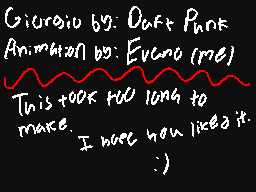 Giorgio by: Daft Punk
Animation by: Evano (me)
This took too long to
make.
I hope you liked it.
:)